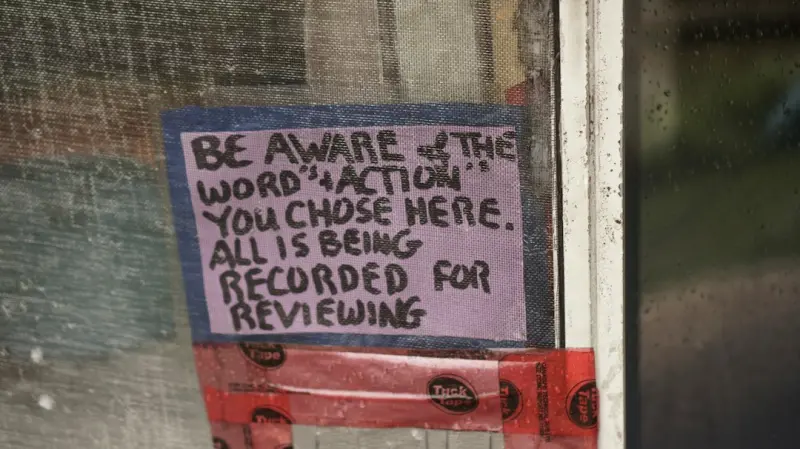 BE AWARE of THE
WORD"s + ACTION"
YOU CHOSE HERE.
ALL IS BEING
RECORDED FOR
REVIEWING
Tuck
Tape
Tuck
Tape